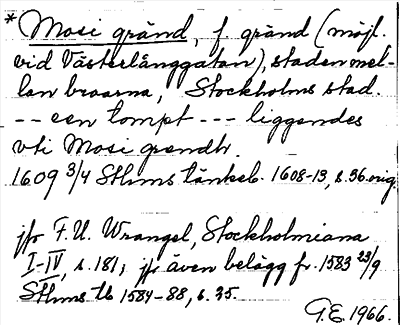 * Mosi gränd, f. gränd (möjl.
vid Västerlånggatan), staden mel-
lan broarna, Stockholms stad.
-- een tompt --- liggendes
vti Mosi grendh.
1609 3/4 Sthms tänkeb. 1608-13, s.36.orig.
jfr F.U. Wrangel, Stockholmiana
I-IV, s.181; jfr även belägg fr. 1583 23/9
Sthms tb 1584-88, s.35.
G.E. 1966.